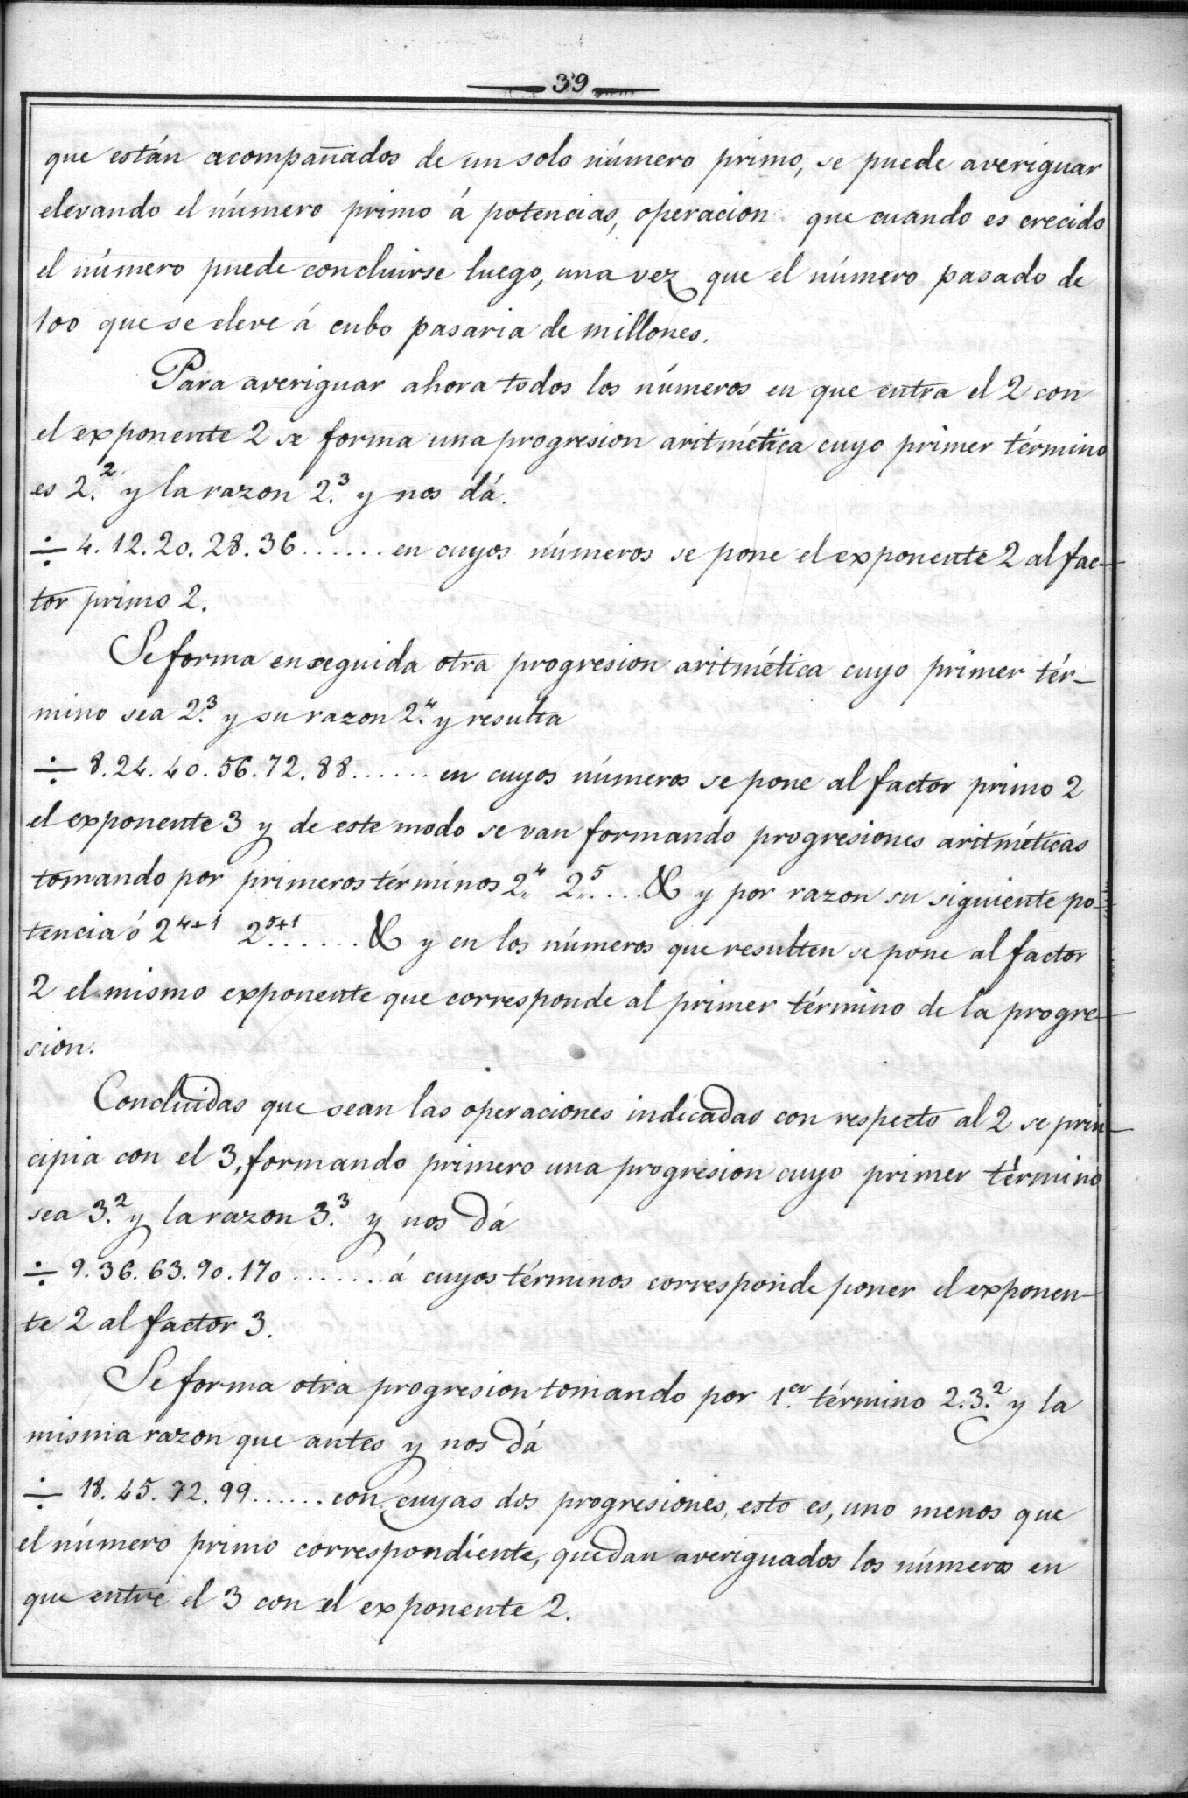 39
que están acompañados de un solo número primo, se puede averiguar
elevando el número primo á potencias, operacion que cuando es crecido
el número puede concluirse luego, una vez que el número pasado de
100 que se eleve á cubo pasaria de millones.
Para averiguar ahora todos los números en que entra el 2 con
el exponente 2 se forma una progresion aritmética cuyo primer término
es 2.² y la razon 2.³ y nos dá.
÷ 4. 12. 20. 28. 36 ...... en cuyos números se pone el exponente 2 al fac-
tor primo 2.
Se forma enseguida otra progresion aritmética cuyo primer tér-
mino sea 2.³ y su razon 2.⁴ y resulta
÷ 8. 24. 40. 56. 72. 88 ...... en cuyos números se pone al factor primo 2
el exponente 3 y de este modo se van formando progresiones aritméticas
tomando por primeros términos 2.⁴ 2.⁵ .... & y por razon su siguiente po-
tencia ó 2⁴⁺¹ 2⁵⁺¹ ...... & y en los números que resulten se pone al factor
2 el mismo exponente que corresponde al primer término de la progre-
sion.
Concluidas que sean las operaciones indicadas con respecto al 2 se prin-
cipia con el 3, formando primero una progresion cuyo primer término
sea 3.² y la razon 3.³ y nos dá
÷ 9. 36. 63. 90. 170 ....... á cuyos términos corresponde poner el exponen-
te 2 al factor 3.
Se forma otra progresion tomando por 1.er término 2.3.² y la
misma razon que antes y nos dá
÷ 18. 45. 72. 99 ...... con cuyas dos progresiones, esto es, uno menos que
el número primo correspondiente, quedan averiguados los números en
que entre el 3 con el exponente 2.